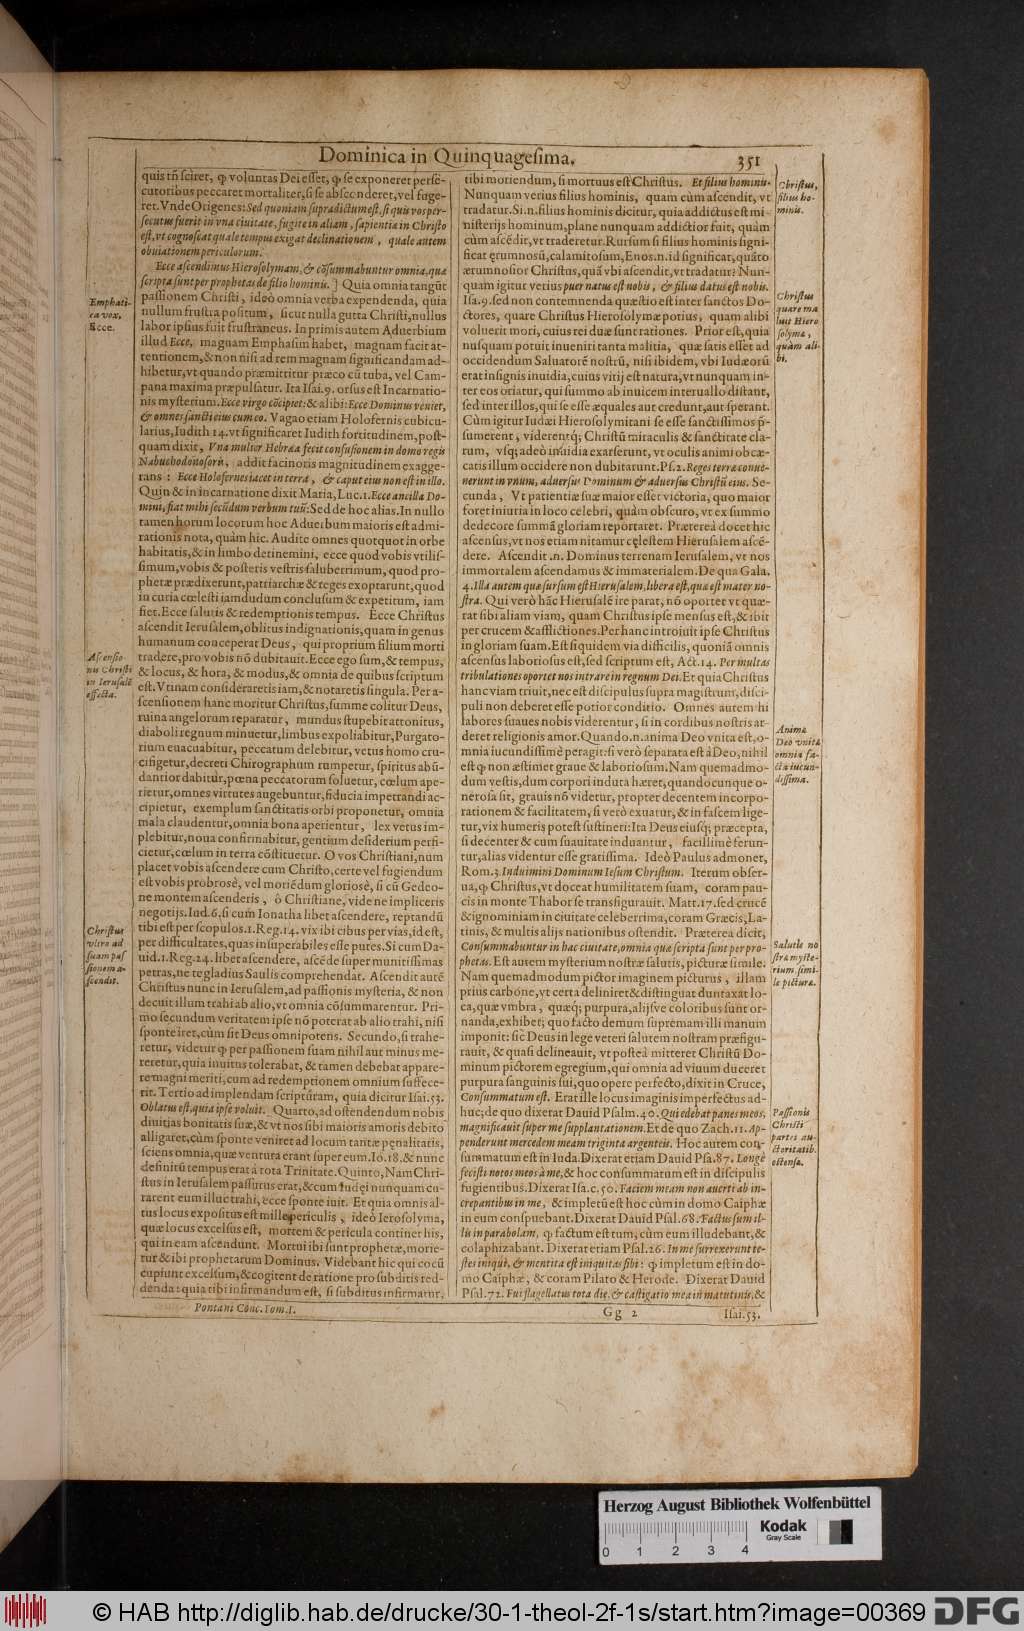 Dominica in Quinquagesima. 351
quis tñ sciret, ꝙ voluntas Dei esset, ꝙ se exponeret perse-
cutoribus peccaret mortaliter, si se absconderet, vel fuge-
ret. Vnde Origenes: Sed quoniam supradictum est, si quis vos per-
secutus fuerit in vna ciuitate, fugite in aliam, sapientia in Christo
est, vt cognoscat quale tempus exigat declinationem, quale autem
obuiationem periculorum.
Ecce ascendimus Hierosolymam, & cōsummabuntur omnia, quæ
scripta sunt per prophetas de filio hominis.] Quia omnia tangūt
passionem Christi, ideò omnia verba expendenda, quia
nullum frustra positum, sicut nulla gutta Christi, nullus
labor ipsius fuit frustraneus. In primis autem Aduerbium
illud Ecce, magnam Emphasim habet, magnam facit at-
tentionem, & non nisi ad rem magnam significandam ad-
hibetur, vt quando præmittitur præco cū tuba, vel Cam-
pana maxima præpulsatur. Ita Isai.9. orsus est Incarnatio-
nis mysterium. Ecce virgo cōcipiet: & alibi: Ecce Dominus veniet,
& omnes sancti eius cum eo. Vagao etiam Holofernis cubicu-
larius, Iudith 14. vt significaret Iudith fortitudinem, post-
quam dixit, Vna mulier Hebræa fecit confusionem in domo regis
Nabuchodonosoris, addit facinoris magnitudinem exagge-
rans: Ecce Holofernes iacet in terra, & caput eius non est in illo.
Quin & in incarnatione dixit Maria, Luc.1. Ecce ancilla Do-
mini, fiat mihi secūdum verbum tuū: Sed de hoc alias. In nullo
tamen horum locorum hoc Aduerbum maioris est admi-
rationis nota, quàm hic. Audite omnes quotquot in orbe
habitatis, & in limbo detinemini, ecce quod vobis vtilis-
simum, vobis & posteris vestris saluberrimum, quod pro-
phetæ prædixerunt, patriarchæ & reges exoptarunt, quod
in curia cœlesti iamdudum conclusum & expetitum, iam
fiet. Ecce salutis & redemptionis tempus. Ecce Christus
ascendit Ierusalem, oblitus indignationis, quam in genus
humanum conceperat Deus, qui proprium filium morti
tradere, pro vobis nō dubitauit. Ecce ego sum, & tempus,
& locus, & hora, & modus, & omnia de quibus scriptum
est. Vtinam consideraretis iam, & notaretis singula. Per a-
scensionem hanc moritur Christus, summe colitur Deus,
ruina angelorum reparatur, mundus stupebit attonitus,
diaboli regnum minuetur, limbus expoliabitur, Purgato-
rium euacuabitur, peccatum delebitur, vetus homo cru-
cifigetur, decreti Chirographum rumpetur, spiritus abū-
dantior dabitur, pœna peccatorum soluetur, cœlum ape-
rietur, omnes virtutes augebuntur, fiducia impetrandi ac-
cipietur, exemplum sanctitatis orbi proponetur, omnia
mala claudentur, omnia bona aperientur, lex vetus im-
plebitur, noua confirmabitur, gentium desiderium perfi-
cietur, cœlum in terra cōstituetur. O vos Christiani, num
placet vobis ascendere cum Christo, certe vel fugiendum
est vobis probrosè, vel moriēdum gloriosè, si cū Gedeo-
ne montem ascenderis, ò Christiane, vide ne impliceris
negotijs. Iud.6. si cum Ionatha libet ascendere, reptandū
tibi est per scopulos. 1.Reg.14. vix ibi cibus per vias, id est,
per difficultates, quas insuperabiles esse putes. Si cum Da-
uid. 1.Reg.24. libet ascendere, ascēde super munitissimas
petras, ne te gladius Saulis comprehendat. Ascendit autē
Christus nunc in Ierusalem, ad passionis mysteria, & non
decuit illum trahi ab alio, vt omnia cōsummarentur. Pri-
mo secundum veritatem ipse nō poterat ab alio trahi, nisi
sponte iret, cùm sit Deus omnipotens. Secundo, si trahe-
retur, videtur ꝙ per passionem suam nihil aut minus me-
reretur, quia inuitus tolerabat, & tamen debebat appare-
re magni meriti, cum ad redemptionem omnium suffece-
rit. Tertio ad implendam scripturam, quia dicitur Isai.53.
Oblatus est, quia ipse voluit. Quarto, ad ostendendum nobis
diuitias bonitatis suæ, & vt nos sibi maioris amoris debito
alligaret, cùm sponte veniret ad locum tantæ pęnalitatis,
sciens omnia, quæ ventura erant super eum. Io.18. & nunc
definitū tempus erat à tota Trinitate. Quinto, Nam Chri-
stus in Ierusalem passurus erat, & cum Iudęi nunquam cu-
rarent eum illuc trahi, ecce sponte iuit. Et quia omnis al-
tus locus expositus est mille periculis, ideò Ierosolyma,
quæ locus excelsus est, mortem & pericula continet his,
qui in eam ascendunt. Mortui ibi sunt prophetæ, morie-
tur & ibi prophetarum Dominus. Videbant hic qui cocū
cupiunt excelsum, & cogitent de ratione pro subditis red-
denda: quia tibi infirmandum est, si subditus infirmatur,
Pontani Conc. Tom.1.
Emphati-
ca vox,
Ecce.
Ascensio-
nis Christi
in Ierusalē
effecta.
Christus
vltro ad
suam pas
sionem a-
scendit.
tibi moriendum, si mortuus est Christus. Et filius hominis.
Nunquam verius filius hominis, quam cùm ascendit, vt
tradatur. Si.n. filius hominis dicitur, quia addictus est mi-
nisterijs hominum, plane nunquam addictior fuit, quàm
cùm ascēdit, vt traderetur. Rursum si filius hominis signi-
ficat ęrumnosū, calamitosum, Enos.n. id significat, quāto
ærumnosior Christus, quā vbi ascendit, vt tradatur? Nun-
quam igitur verius puer natus est nobis, & filius datus est nobis.
Isa.9. sed non contemnenda quæstio est inter sanctos Do-
ctores, quare Christus Hierosolymæ potius, quam alibi
voluerit mori, cuius rei duæ sunt rationes. Prior est, quia
nusquam potuit inueniri tanta malitia, quæ satis esset ad
occidendum Saluatorē nostrū, nisi ibidem, vbi Iudæorū
erat insignis inuidia, cuius vitij est natura, vt nunquam in-
ter eos oriatur, qui summo ab inuicem interuallo distant,
sed inter illos, qui se esse æquales aut credunt, aut sperant.
Cùm igitur Iudæi Hierosolymitani se esse sanctissimos p̄-
sumerent, viderentq́; Christū miraculis & sanctitate cla-
rum, vsq; adeò inuidia exarserunt, vt oculis animi obcæ-
catis illum occidere non dubitarunt. Ps.2. Reges terræ conuē-
nerunt in vnum, aduersus Dominum & aduersus Christū eius. Se-
cunda, Vt patientiæ suæ maior esset victoria, quo maior
foret iniuria in loco celebri, quàm obscuro, vt ex summo
dedecore summā gloriam reportaret. Prætereà docet hic
ascensus, vt nos etiam nitamur cęlestem Hierusalem ascē-
dere. Ascendit .n. Dominus terrenam Ierusalem, vt nos
immortalem ascendamus & immaterialem. De qua Gala.
4. Illa autem quæ sursum est Hierusalem, libera est, quæ est mater no-
stra. Qui verò hāc Hierusalē ire parat, nō oportet vt quæ-
rat sibi aliam viam, quam Christus ipse mensus est, & ibit
per crucem & afflictiones. Per hanc introiuit ipse Christus
in gloriam suam. Est siquidem via difficilis, quoniā omnis
ascensus laboriosus est, sed scriptum est, Act.14. Per multas
tribulationes oportet nos intrare in regnum Dei. Et quia Christus
hanc viam triuit, nec est discipulus supra magistrum, disci-
puli non deberet esse potior conditio. Omnes autem hi
labores suaues nobis viderentur, si in cordibus nostris ar-
deret religionis amor. Quando.n. anima Deo vnita est, o-
mnia iucundissimè peragit: si verò separata est à Deo, nihil
est ꝙ non æstimet graue & laboriosum. Nam quemadmo-
dum vestis, dum corpori induta hæret, quandocunque o-
nerosa sit, grauis nō videtur, propter decentem incorpo-
rationem & facilitatem, si verò exuatur, & in fascem lige-
tur, vix humeris potest sustineri: Ita Deus eiusq́; præcepta,
si decenter & cum suauitate induantur, facillimè ferun-
tur, alias videntur esse gratissima. Ideò Paulus admonet,
Rom.3. Induimini Dominum Iesum Christum. Iterum obser-
ua, ꝙ Christus, vt doceat humilitatem suam, coram pau-
cis in monte Thabor se transfigurauit. Matt.17. sed crucē
& ignominiam in ciuitate celeberrima, coram Græcis, La-
tinis, & multis alijs nationibus ostendit. Præterea dicit,
Consummabuntur in hac ciuitate, omnia quæ scripta sunt per pro-
phetas. Est autem mysterium nostræ salutis, picturæ simile.
Nam quemadmodum pictor imaginem picturus, illam
prius carbone, vt certa deliniret & distinguat duntaxat lo-
ca, quæ vmbra, quæq́; purpura, alijsve coloribus sunt or-
nanda, exhibet; quo facto demum supremam illi manum
imponit: sic Deus in lege veteri salutem nostram præfigu-
rauit, & quasi delineauit, vt posteà mitteret Christū Do-
minum pictorem egregium, qui omnia ad viuum duceret
purpura sanguinis sui, quo opere perfecto, dixit in Cruce,
Consummatum est. Erat ille locus imaginis imperfectus ad-
huc; de quo dixerat Dauid Psalm.40. Qui edebat panes meos,
magnificauit super me supplantationem. Et de quo Zach.11. Ap-
penderunt mercedem meam triginta argenteis. Hoc autem con-
summatum est in Iuda. Dixerat etiam Dauid Psa.87. Longè
fecisti notos meos à me, & hoc consummatum est in discipulis
fugientibus. Dixerat Isa.c.50. Faciem meam non auerti ab in-
crepantibus in me, & impletū est hoc cùm in domo Caiphæ
in eum conspuebant. Dixerat Dauid Psal.68. Factus sum il-
lis in parabolam, ꝙ factum est tum, cùm eum illudebant, &
colaphizabant. Dixerat etiam Psal.26. In me surrexerunt te-
stes iniqui, & mentita est iniquitas sibi: ꝙ impletum est in do-
mo Caiphæ, & coram Pilato & Herode. Dixerat Dauid
Psal.72. Fui flagellatus tota die, & castigatio mea in matutinis, &
Gg 2 Isai.53.
Christus,
filius ho-
minis.
Christus
quare ma
luit Hiero
solymæ,
quàm ali-
bi.
Anima
Deo vnita
omnia fa-
cta iucun-
dissima.
Salutis no
stræ myste-
rium, simi-
le picturæ.
Passionis
Christi
partes au-
ctoritatib.
ostensæ.
Herzog August Bibliothek Wolfenbüttel
Kodak
Gray Scale
0 1 2 3 4
© HAB http://diglib.hab.de/drucke/30-1-theol-2f-1s/start.htm?image=00369
DFG